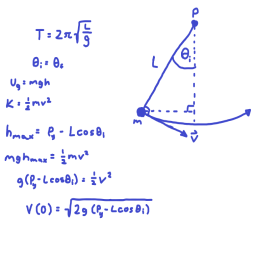 T = 2π√(L/g)
θᵢ = θ₀
U_g = mgh
K = ½mv²
h_max = P_y - Lcosθᵢ
mgh_max = ½mv²
g(P_y - Lcosθᵢ) = ½v²
V(0) = √(2g(P_y - Lcosθᵢ))
P
L
θᵢ
m
v⃗